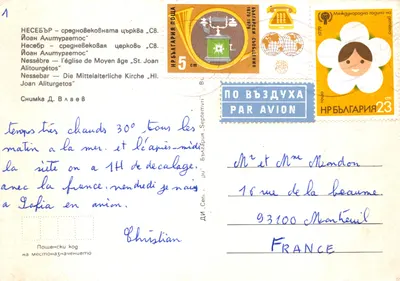 1
НЕСЕБЪР – средновековната църква "Св.
Йоан Алитургетос"
Несебр – средневековая церковь "Св.
Йоан Алитургетос"
Nessèbre – l'église de Moyen âge "St. Joan
Alitourgetos"
Nessebar – Die Mittelalterliche Kirche "Hl.
Joan Aliturgetos"
Снимка Д. Влаев
temps très chauds 30° tous les
matin à la mer. et l'après-midi
la sieste on a 1H de décalage
avec la france. vendredi je vais
a Sofia en avion.
Christian
Пощенски код
на местоназначението
НР БЪЛГАРИЯ ПОЩА
5
ст
1879 1979
ПО ВЪЗДУХА
PAR AVION
Международна година на детето
1979
НР БЪЛГАРИЯ 23
Mr et Mme Miondon
16 rue de la beaume
93100 Montreuil
FRANCE